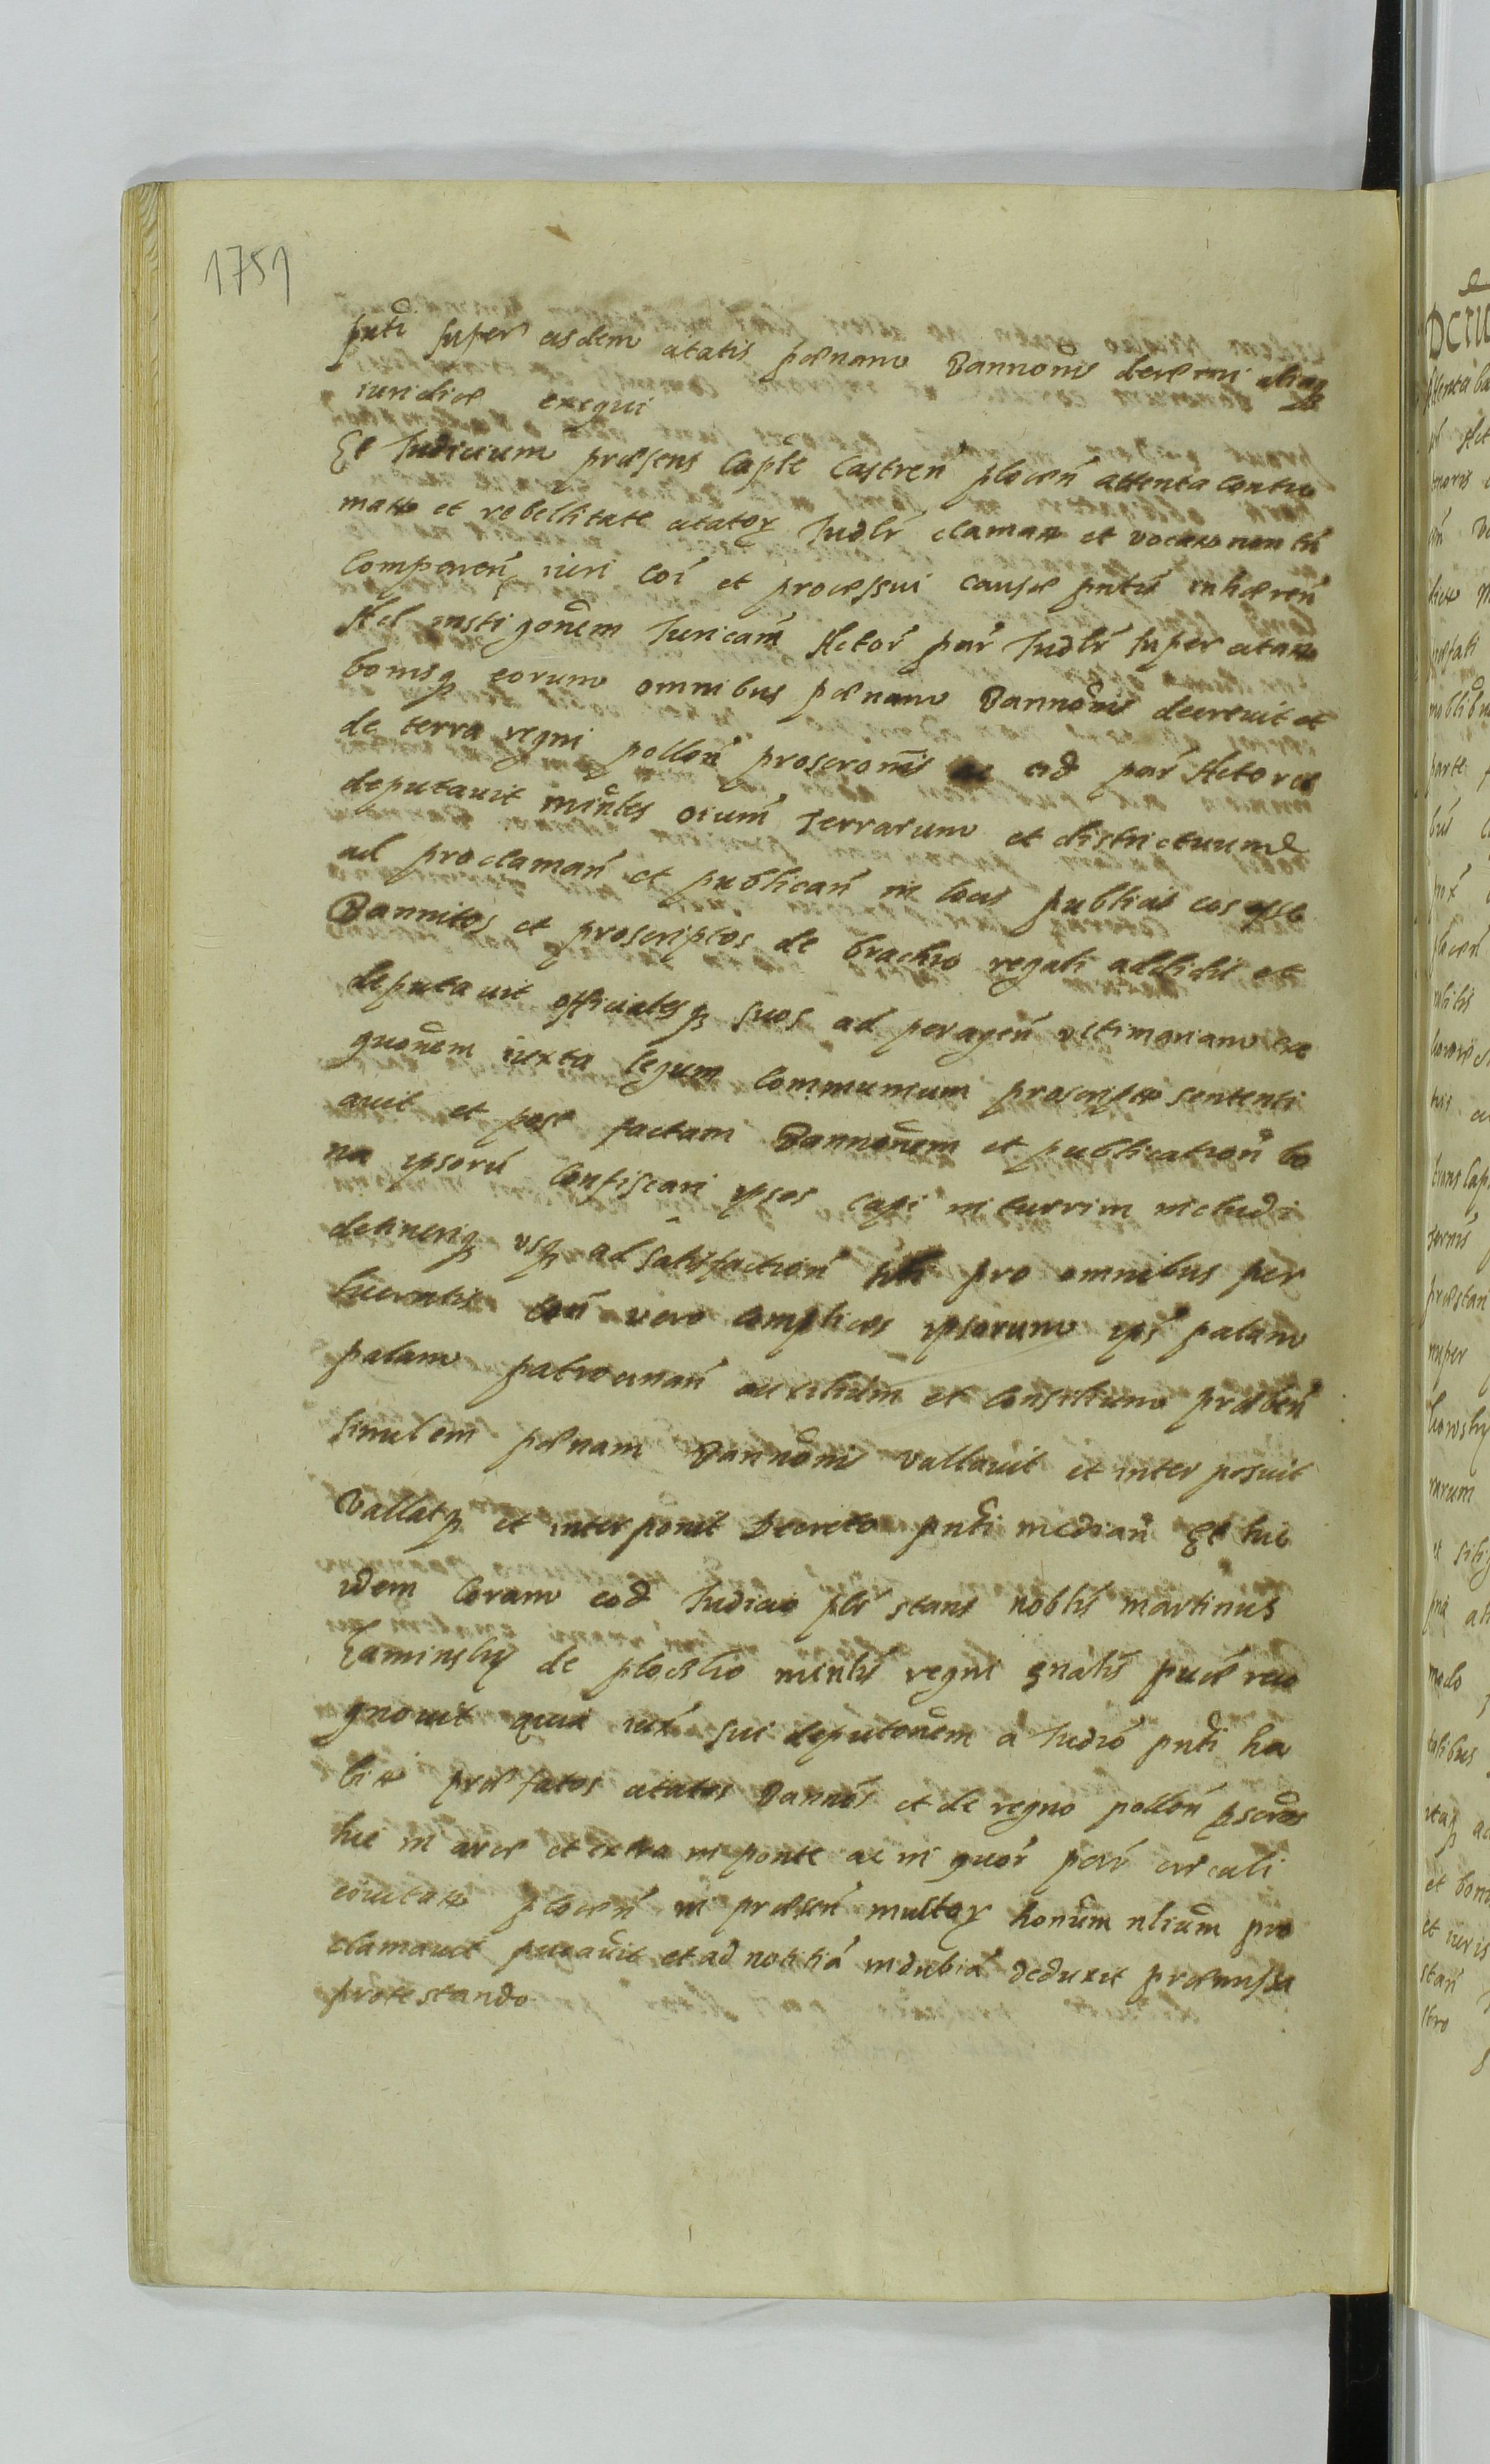 1751
pnti super eisdem citatis pœnam Bannonis decerni aliaq
iuridice exequi
Et Iudicium præsens Caple Castren plocen attenta contu
matia et rebellitate citator Iudlr clamat et vocat non tn
Comparen iuri coi et processui causæ pntis inhæren
Ad instigonem Iuricam Actor par Iudlr super citatos
bonisq eorum omnibus pœnam Bannonis decrevit et
de terra regni pollon proscronis eid par Actorea
deputavit minles oium Terrarum et districtuum
ad proclaman et publican in locis publicis eos esse
Bannitos et proscriptos de brachio regali addidit et
deputavit officialesq suos ad peragen ultimariam exe
quonem iuxta legum Communium proscripta sententi
avit et post factam Bannonem et publication bo
na ipsoru Confiscari ipsos capi in turrim includi
detineriq usq ad satisfaction pro omnibus per
lucrantis con vero complices ipsorum ips palam
palam patrocinan auxilium et Consilium præben
Similem pœnam Bannonis vallavit et inter posuit
Vallatq et interponit Decreto pnti median Et hic
idem Coram eod Iudicio plr stans noblis martinus
Kaminsky de plocsko minlis regni gnalis puce reco
gnovit quia iux sui deputonem a Iudio pnti ha
bita præfatos citatos Bannos et de regno pollon pscrtos
hic in arce et extra in ponte ac in quor pari circuli
civitatis plocen in præsen multor honum nlium pro
clamavit pucavit et ad notitia indubia deduxit præmissa
protestando